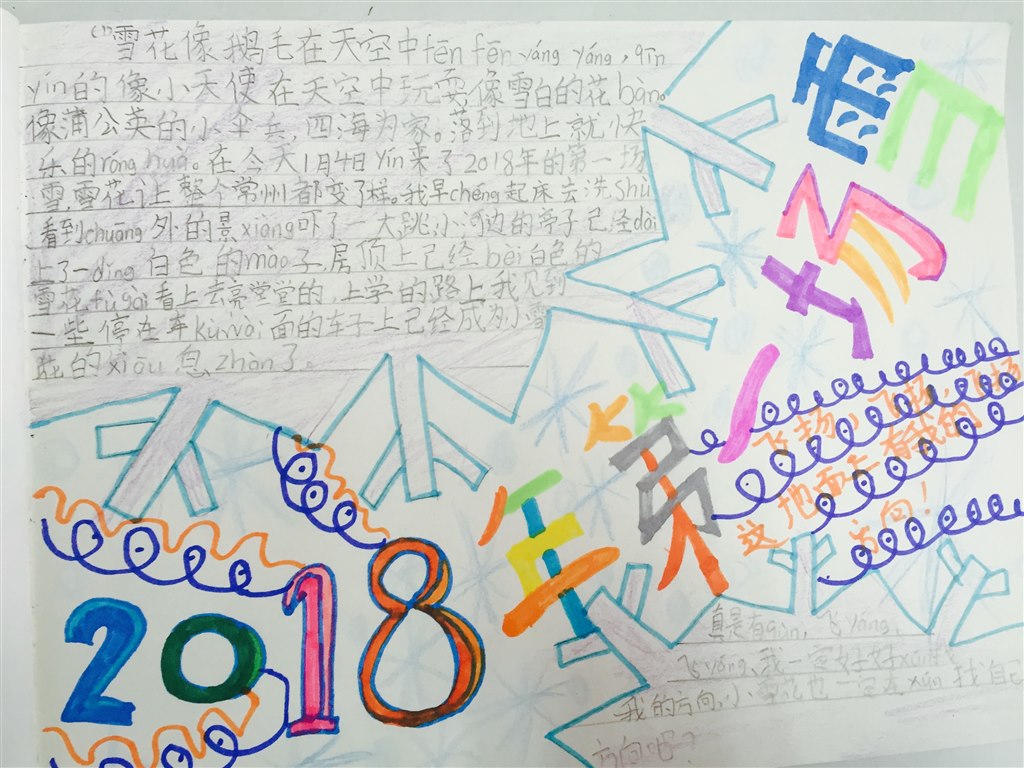 (1)雪花像鹅毛在天空中fēn fēn yáng yáng，qīn
yín的像小天使在天空中玩耍像雪白的花bàn。
像蒲公英的小伞去四海为家。落到地上就快
乐的róng huà。在今天1月4日yín来了2018年的第一场
雪雪花们上整个常州都变了样。我早chéng起床去洗shù
看到chuāng外的景xiàng吓了一大跳，小河边的亭子已经dài
上了一dǐng白色的mào子，房顶上已经bèi白色的
雪花fù gài看上去亮堂堂的，上学的路上我见到
一些停在车kù wài面的车子上已经成为小雪
花的xiū息zhàn了。
2018年第一场雪
飞扬，飞扬，飞扬
这地面上有我的
方向！
真是有qù，飞yáng，
飞yáng，我一定好好xún找
我的方向，小雪花也一定在xún找自己
方向吧？